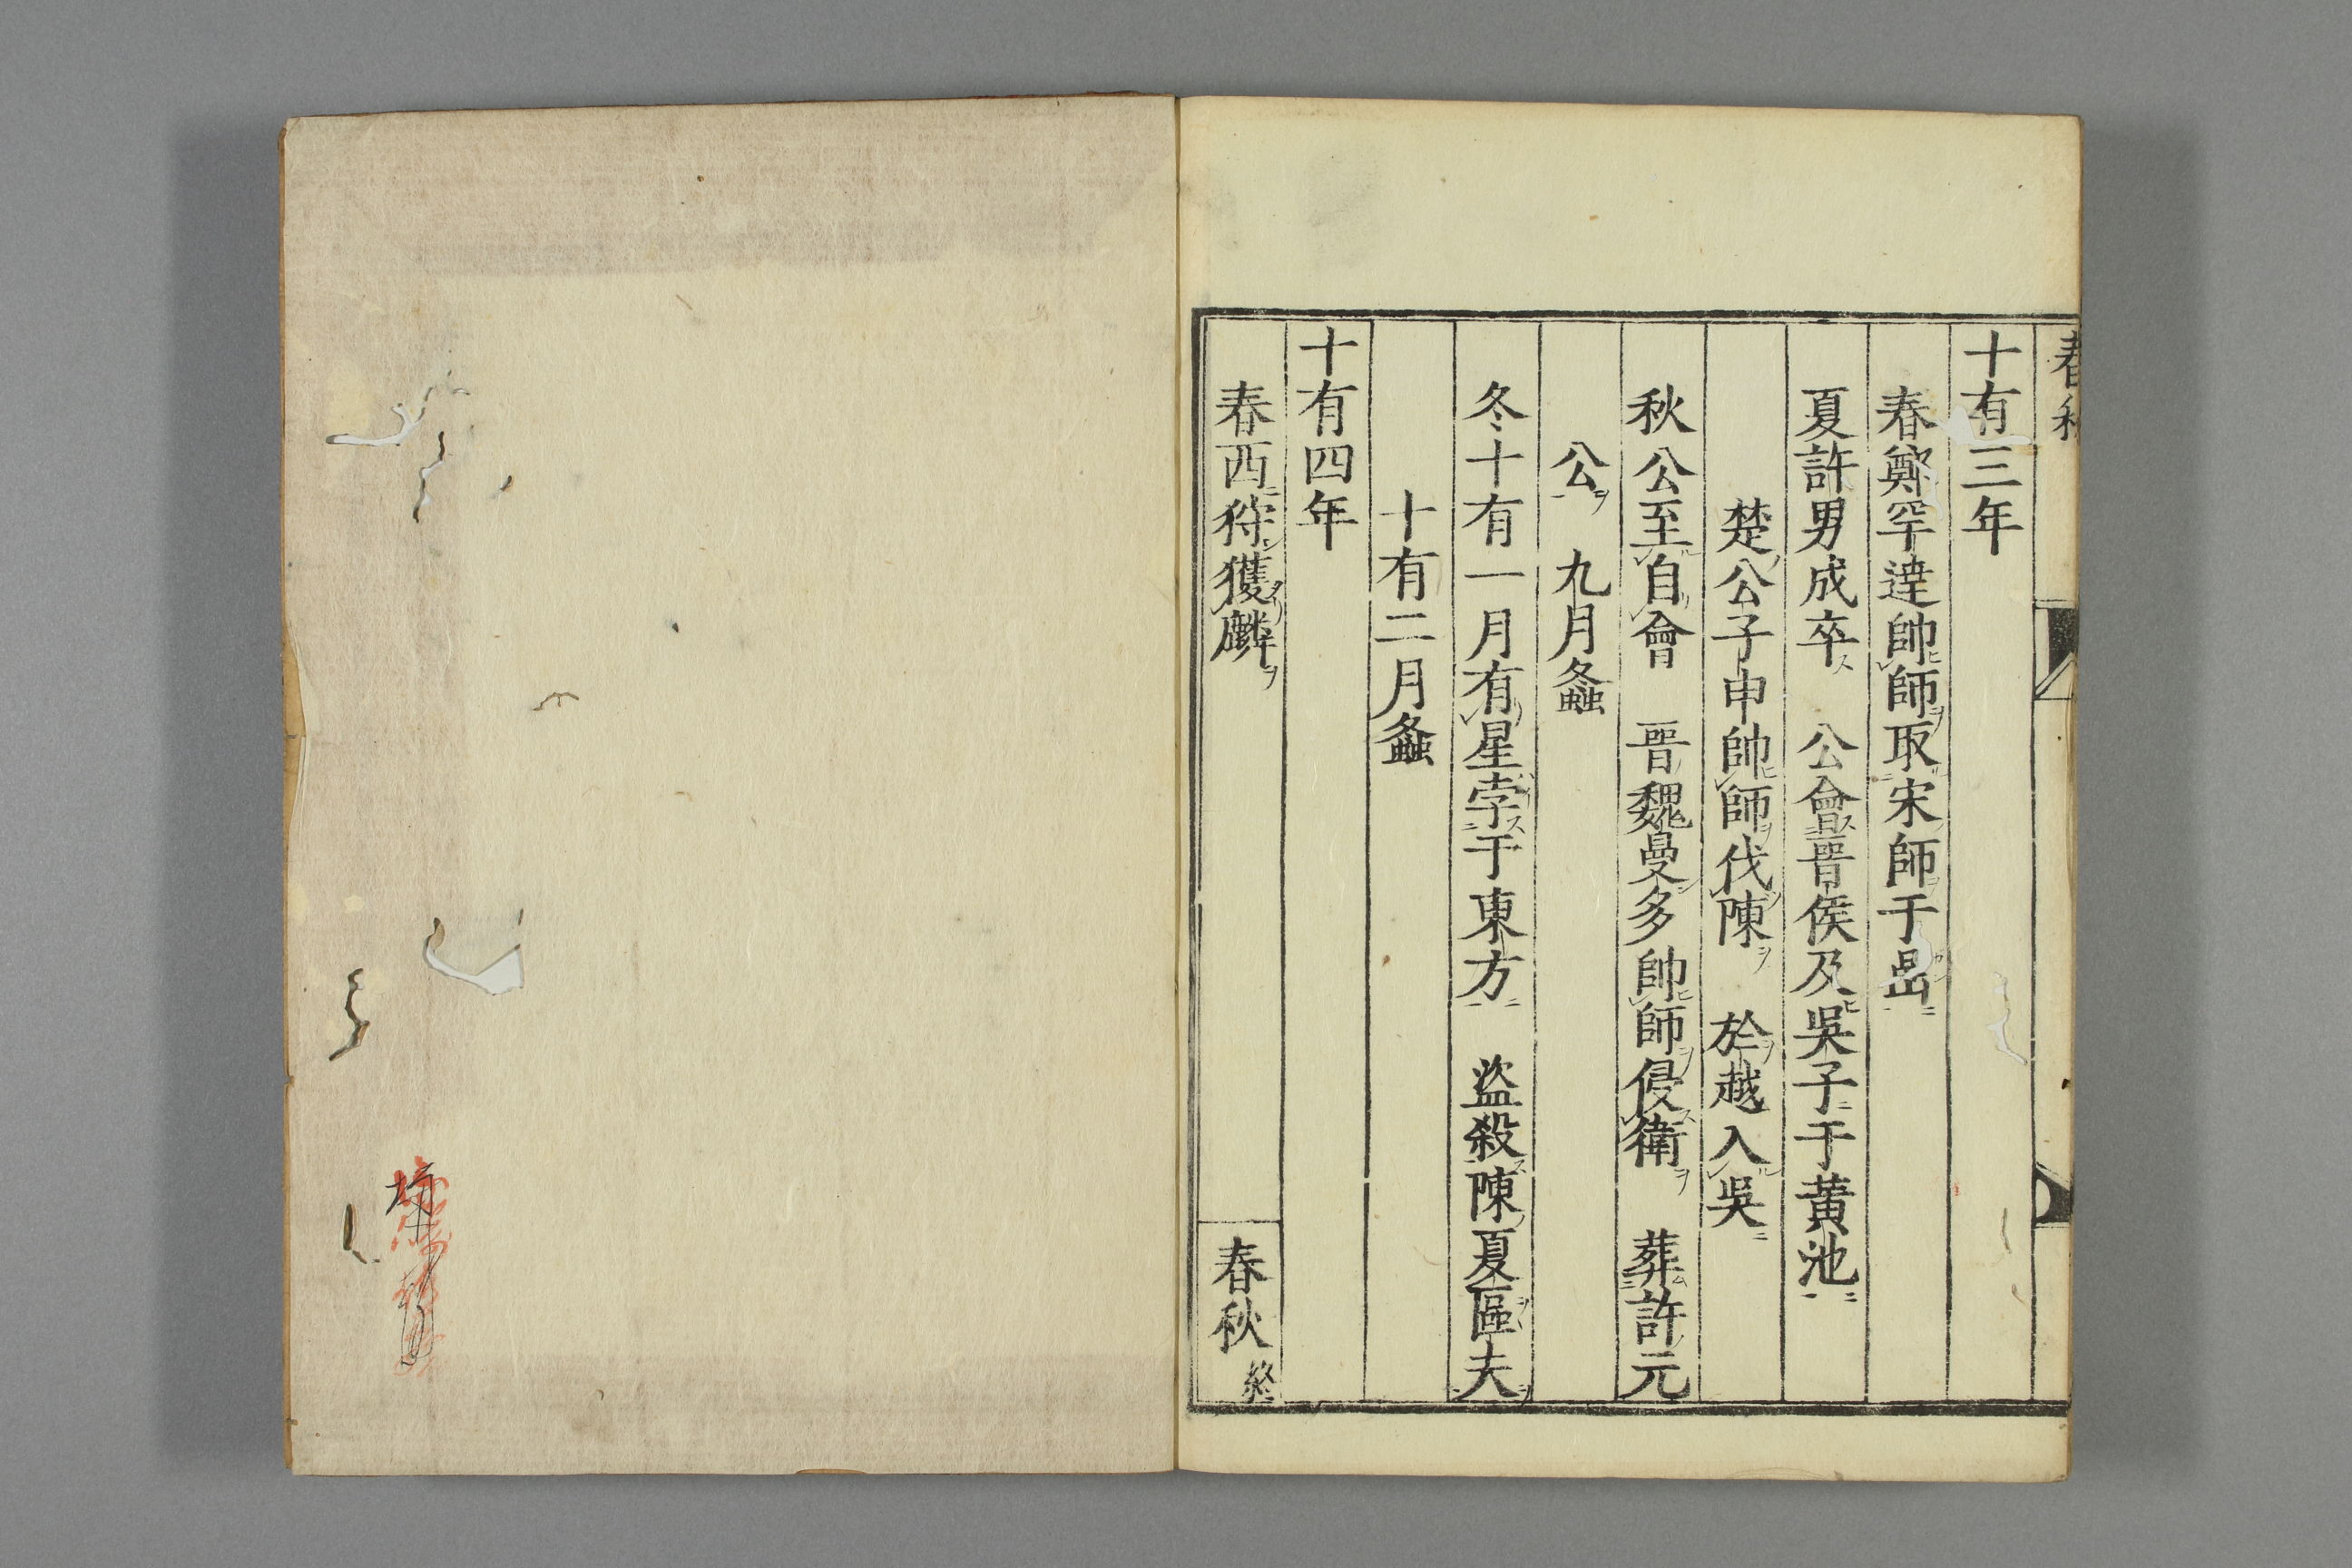 春秋
十有三年
春鄭罕達帥師取宋師于嵒
夏許男成卒　公會晉侯及吳子于黃池
楚公子申帥師伐陳　於越入吳
秋公至自會　晉魏曼多帥師侵衛　葬許元
公　九月螽
冬十有一月有星孛于東方　盜殺陳夏區夫
十有二月螽
十有四年
春西狩獲麟
春秋終